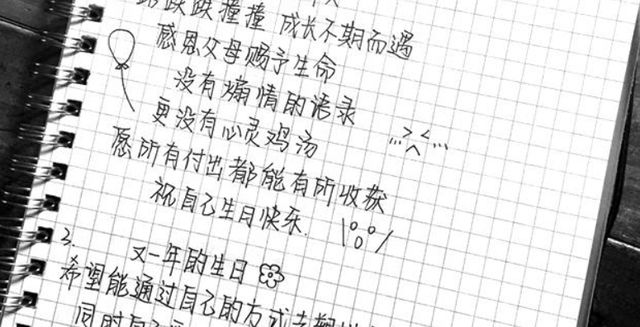 跌跌撞撞 成长不期而遇
感恩父母赐予生命
没有煽情的语录
更没有心灵鸡汤
愿所有付出都能有所收获
祝自己生日快乐.
3.
又一年的生日
希望能通过自己的方式去
同时自己